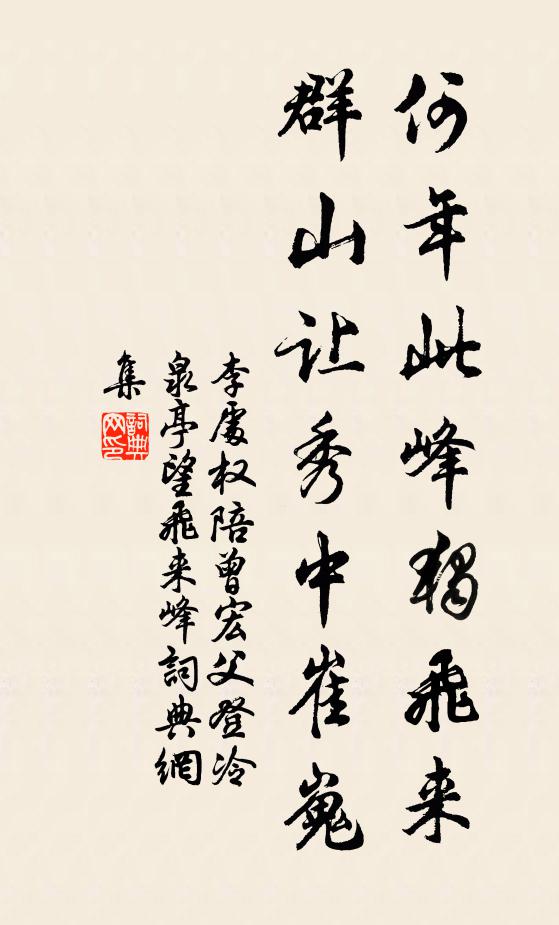 何年此峰獨飛来
群山让秀中崔嵬
李處权陪曾宏父登冷
泉亭望飛来峰詞典網
集
詞典网印